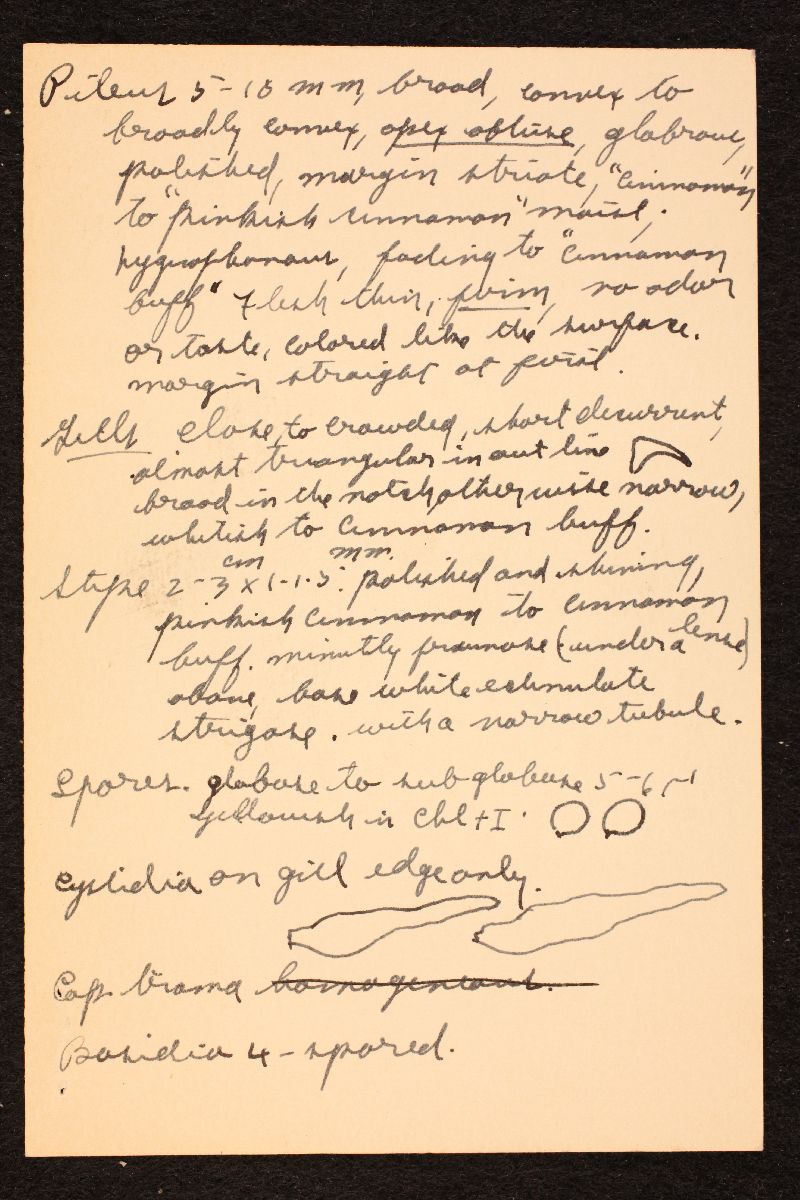 Pileus 5-18 mm, broad, convex to
broadly convex, apex obtuse, glabrous,
polished, margin striate, "cinnamon"
to "pinkish cinnamon" moist,
hygrophonous, fading to "cinnamon
buff" Flesh thin, firm, no odor
or taste, colored like the surface.
margin straight at first.
Gills close, to crowded, short decurrent,
almost triangular in out line
broad in the notch otherwise narrow,
whitish to cinnamon buff.
Stipe 2-3 cm x 1-1.5 mm. polished and shining,
pinkish cinnamon to cinnamon
buff. minutly pruinose (under a lense)
above, base white
strigose. with a narrow tubule.
Spores. globose to subglobose 5-6
yellowish in Chl + I.
Cystidia on gill edge only.
Cap trama homogeneous.
Basidia 4-spored.